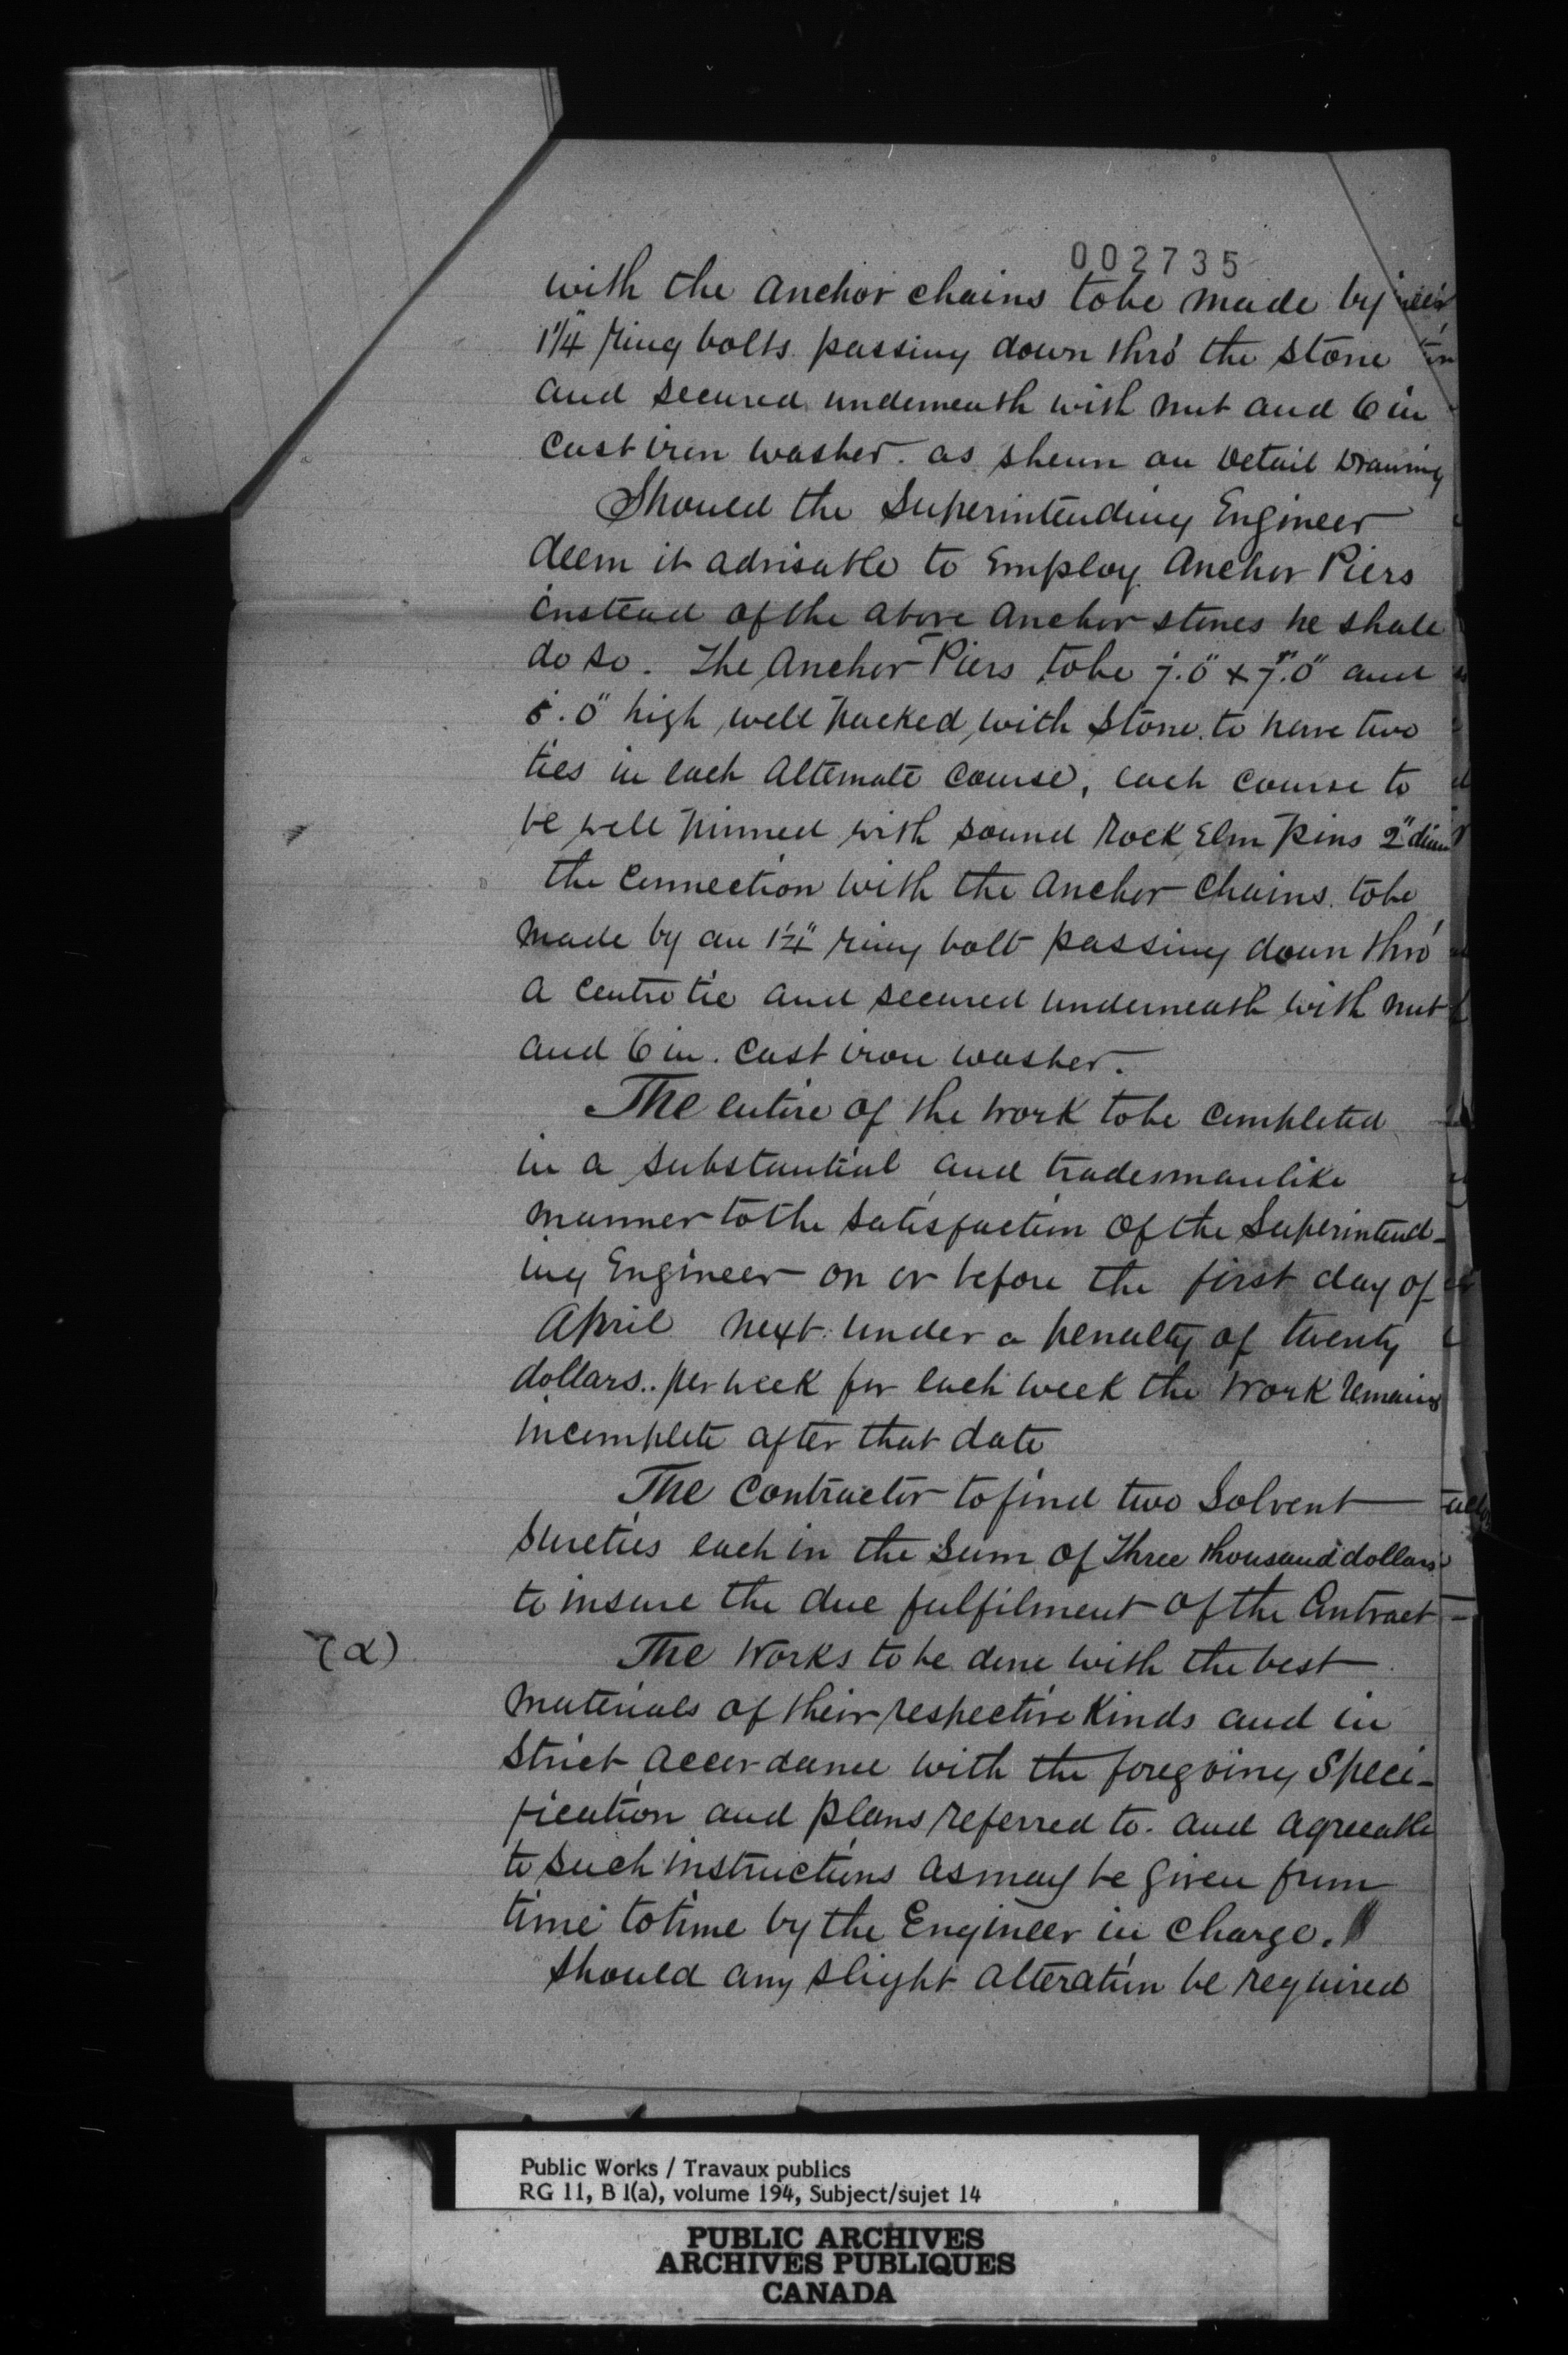 002735
with the anchor chains to be made by
1¼" ring bolts passing down thro' the stone
and secured underneath with nut and 6 in
cast iron washer. as shewn on Detail Drawing
Should the Superintending Engineer
deem it advisable to Employ Anchor Piers
instead of the above anchor stones he shall
do so. The Anchor Piers to be 7'.0" x 7'.0" and
high well packed, with stone. to have two
ties in each alternate course, each course to
be well pinned with sound Rock Elm pins 2" diam
the connection with the anchor chains to be
made by an 1¼" ring bolt passing down thro'
a centre tie and secured underneath with nut
and 6 in. cast iron washer.
The entire of the work to be completed
in a substantial and tradesmanlike
manner to the satisfaction of the Superintend-
ing Engineer on or before the first day of
April next under a penalty of twenty
dollars.. per week for each week the work remains
incomplete after that date
The Contractor to find two Solvent
Sureties each in the sum of Three thousand dollars
to insure the due fulfilment of the Contract
(a) The Works to be done with the best
materials of their respective kinds and in
strict accordance with the foregoing Speci-
fication and plans referred to. and agreeable
to such instructions as may be given from
time to time by the Engineer in charge.
Should any slight alteration be required
Public Works / Travaux publics
RG 11, B 1(a), volume 194, Subject/sujet 14
PUBLIC ARCHIVES
ARCHIVES PUBLIQUES
CANADA